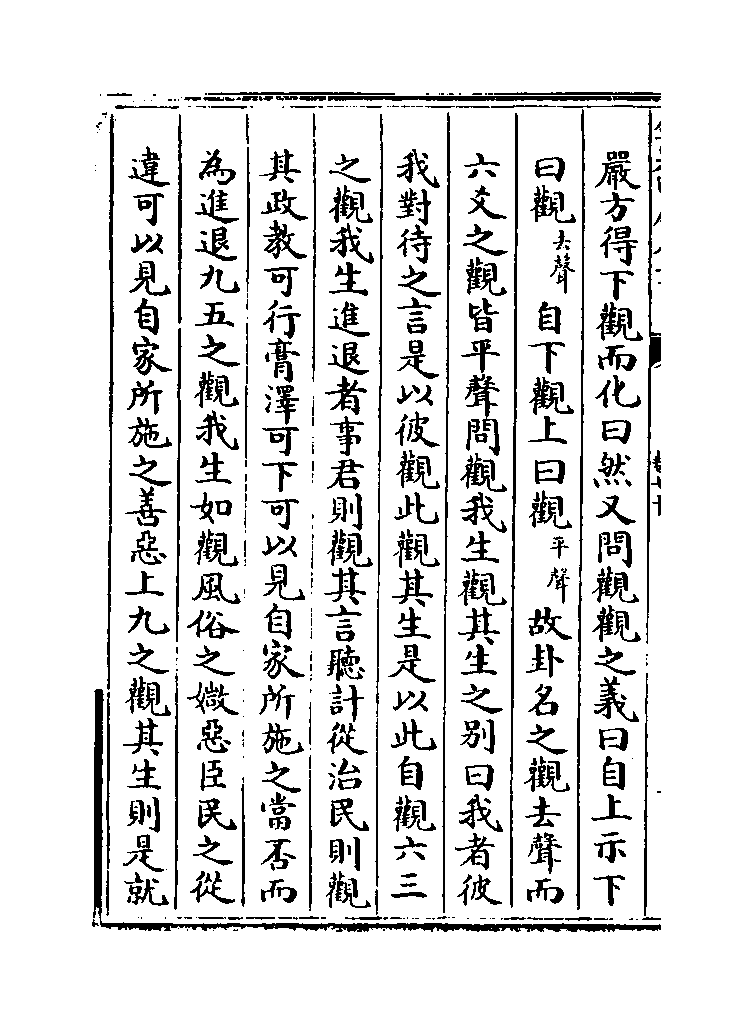 嚴方得下觀而化曰然又問觀觀之義曰自上示下
曰觀去聲自下觀上曰觀平聲故卦名之觀去聲而
六爻之觀皆平聲問觀我生觀其生之别曰我者彼
我對待之言是以彼觀此觀其生是以此自觀六三
之觀我生進退者事君則觀其言聽計從治民則觀
其政教可行膏澤可下可以見自家所施之當否而
為進退九五之觀我生如觀風俗之媺惡臣民之從
違可以見自家所施之善惡上九之觀其生則是就